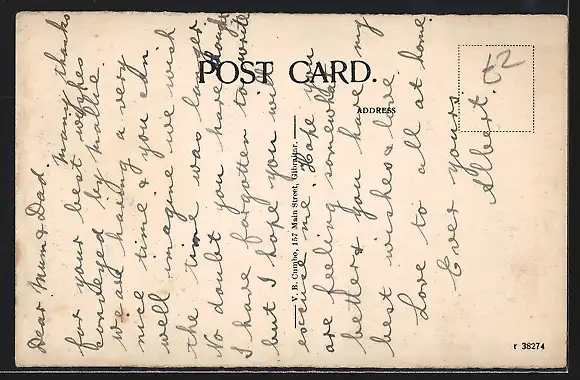 POST CARD.
ADDRESS
V. B. Cumbo, 157 Main Street, Gibraltar.
r 38274
62
Dear Mum & Dad.
Many thanks
for your best wishes
conveyed by
we are having a very
nice time & you can
well imagine we wish
the time was longer
No doubt you have thought
I have forgotten to write
but I hope you will
excuse me. Hope you
are feeling somewhat
better & you have my
best wishes & love.
Love to all at home
Ever yours
Albert.